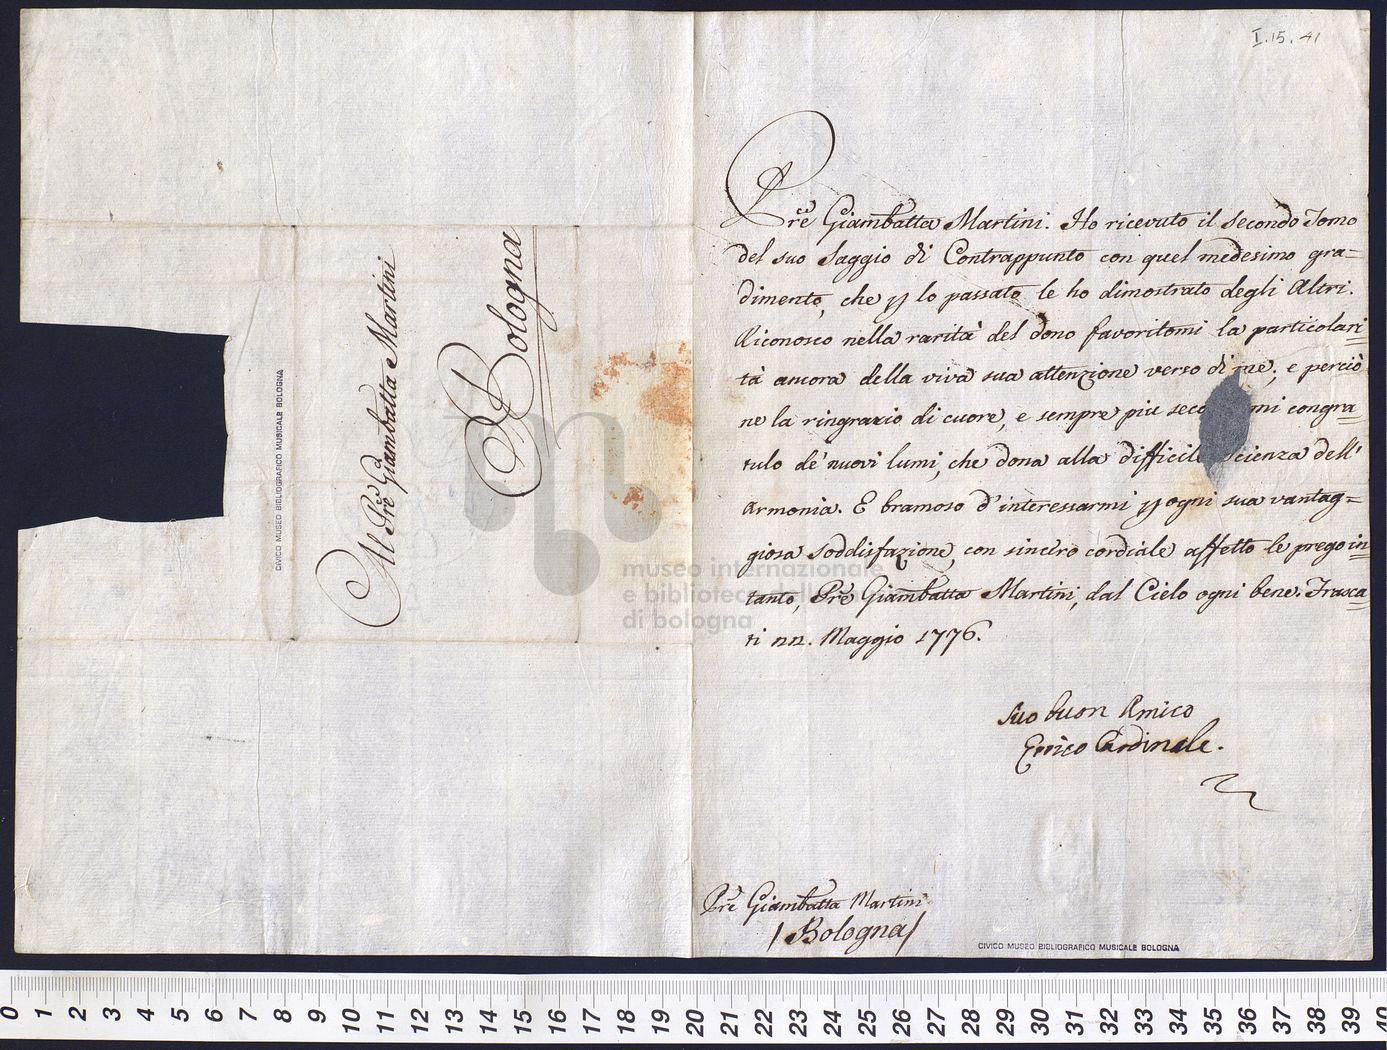 I. 15. 41
Prē Giambatta Martini. Ho ricevuto il secondo Tomo
del suo Saggio di Contrappunto con quel medesimo gra=
dimento, che lo passato le ho dimostrato degli Altri.
Riconosco nella rarità del dono favoritomi la particolari
tà ancora della viva sua attenzione verso di me; e perciò
ne la ringrazio di cuore, e sempre più seco mi congra=
tulo de' nuovi lumi, che dona alla difficile scienza dell'
Armonia. E bramoso d'interessarmi ogni sua vantag=
giosa soddisfazione, con sincero cordiale affetto le prego in=
tanto, Prē Giambatta Martini, dal Cielo ogni bene. Frasca=
ti Maggio 1776.
Suo buon Amico
Errico Cardinale.
Prē Giambatta Martini
/Bologna/
CIVICO MUSEO BIBLIOGRAFICO MUSICALE BOLOGNA
Al Prē Giambatta Martini
Bologna
CIVICO MUSEO BIBLIOGRAFICO MUSICALE BOLOGNA
museo internazionale
e biblioteca della
di bologna
0 1 2 3 4 5 6 7 8 9 10 11 12 13 14 15 16 17 18 19 20 21 22 23 24 25 26 27 28 29 30 31 32 33 34 35 36 37 38 39 40